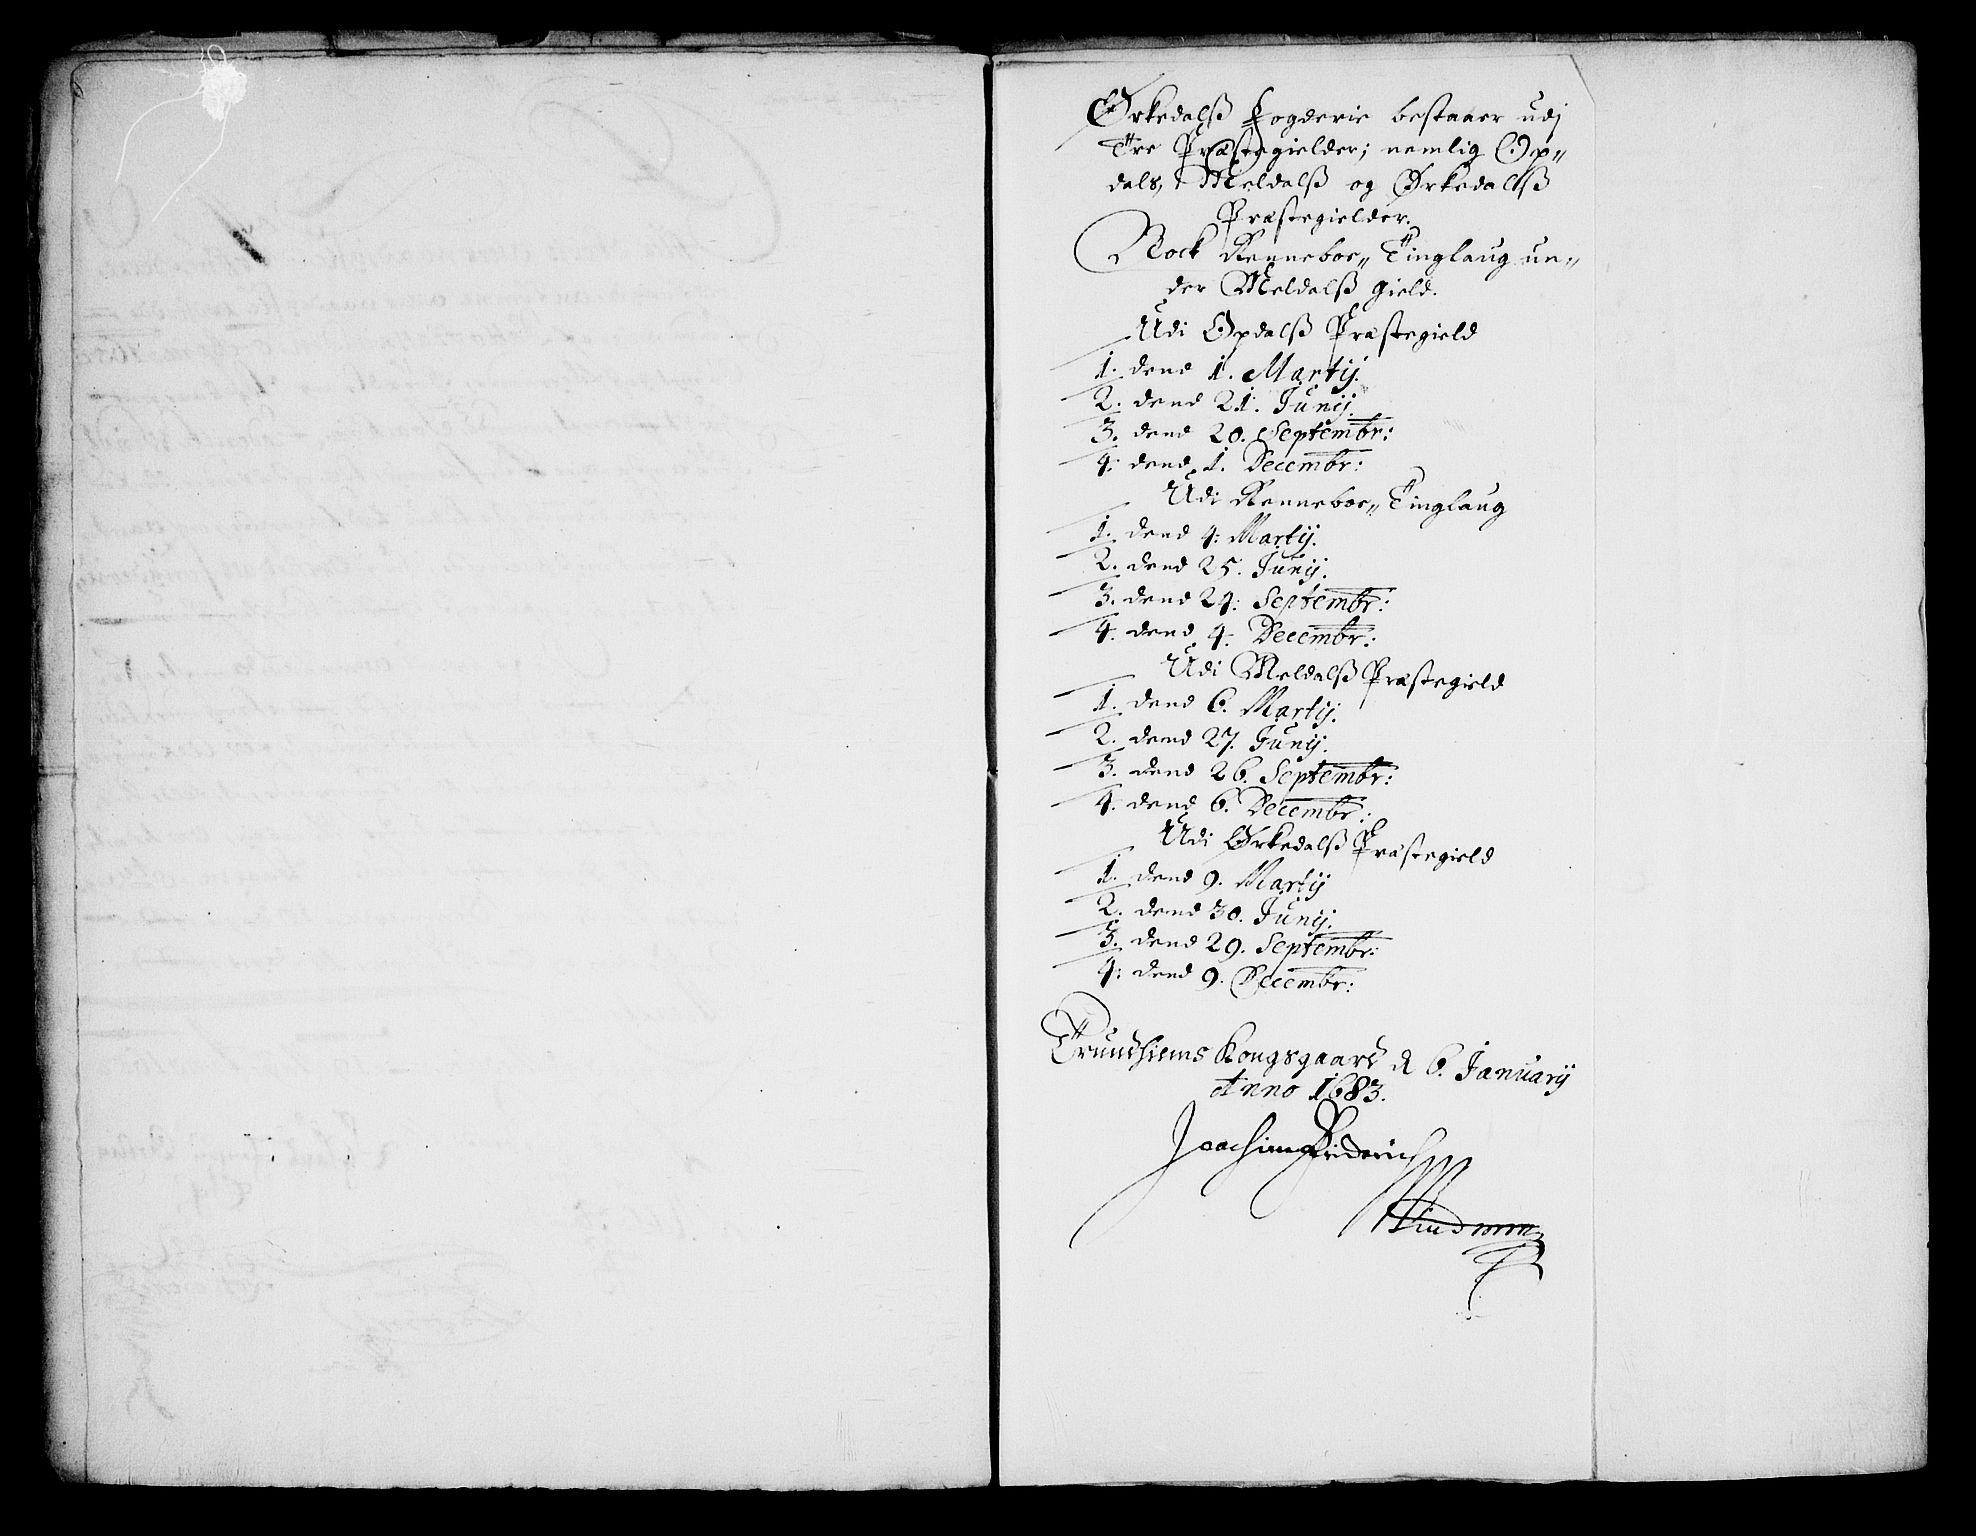 Ørkedalß Fogderie bestaaer udj
Tre Præstegielder; nemlig Op„
dals, Meldalß og Ørkedalß
Præstegielder.
Nock Renneboe„ Tinglaug un„
der Meldalß gield.
Udi Opdalß Præstegield
1. dend 1. Martij.
2. dend 21. Junij.
3. dend 20. Septembr:
4: dend 1. Decembr:
Udi Renneboe„ Tinglaug
1. dend 4: Martij.
2. dend 25. Junij.
3. dend 24: Septembr:
4. dend 4. Decembr:
Udi Meldalß Præstegield
1. dend 6. Martij.
2. dend 27. Junij.
3. dend 26. Septembr:
4. dend 6. Decembr:
Udi Ørkedalß Præstegield
1. dend 9. Martij
2. dend 30. Junij.
3. dend 29. Septembr:
4: dend 9. Decembr:
Trundhiems Kongsgaard d 6. Januarij
Anno 1683.
Joachim Friderich